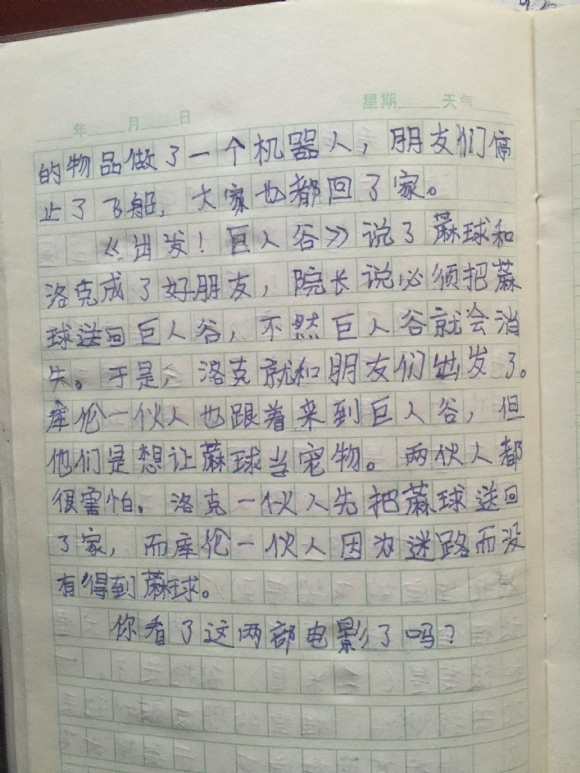 年 月 日 星期 天气
的物品做了一个机器人，朋友们停
止了飞船，大家也都回了家。
《出发！巨人谷》说了蔴球和
洛克成了好朋友，院长说必须把蔴
球送回巨人谷，不然巨人谷就会消
失。于是，洛克就和朋友们出发了。
库伦一伙人也跟着来到巨人谷，但
他们是想让蔴球当宠物。两伙人都
很害怕。洛克一伙人先把蔴球送回
了家，而库伦一伙人因为迷路而没
有得到蔴球。
你看了这两部电影了吗？